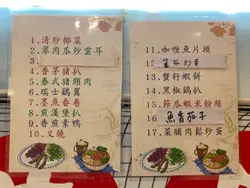 1. 清炒椰菜
2. 翠肉瓜炒雲耳
3.
4. 香茅豬扒
5. 泰式豬頸肉
6. 瑞士鷄翼
7. 墨魚春卷
8. 煎漢堡扒
9. 香煎素鴨
10. 叉燒
11. 咖喱魚片頭
12.
13. 蟹籽蝦餅
14. 黑椒鷄扒
15. 節瓜蝦米粉絲
16. 魚香茄子
17. 菜脯肉鬆炒蛋